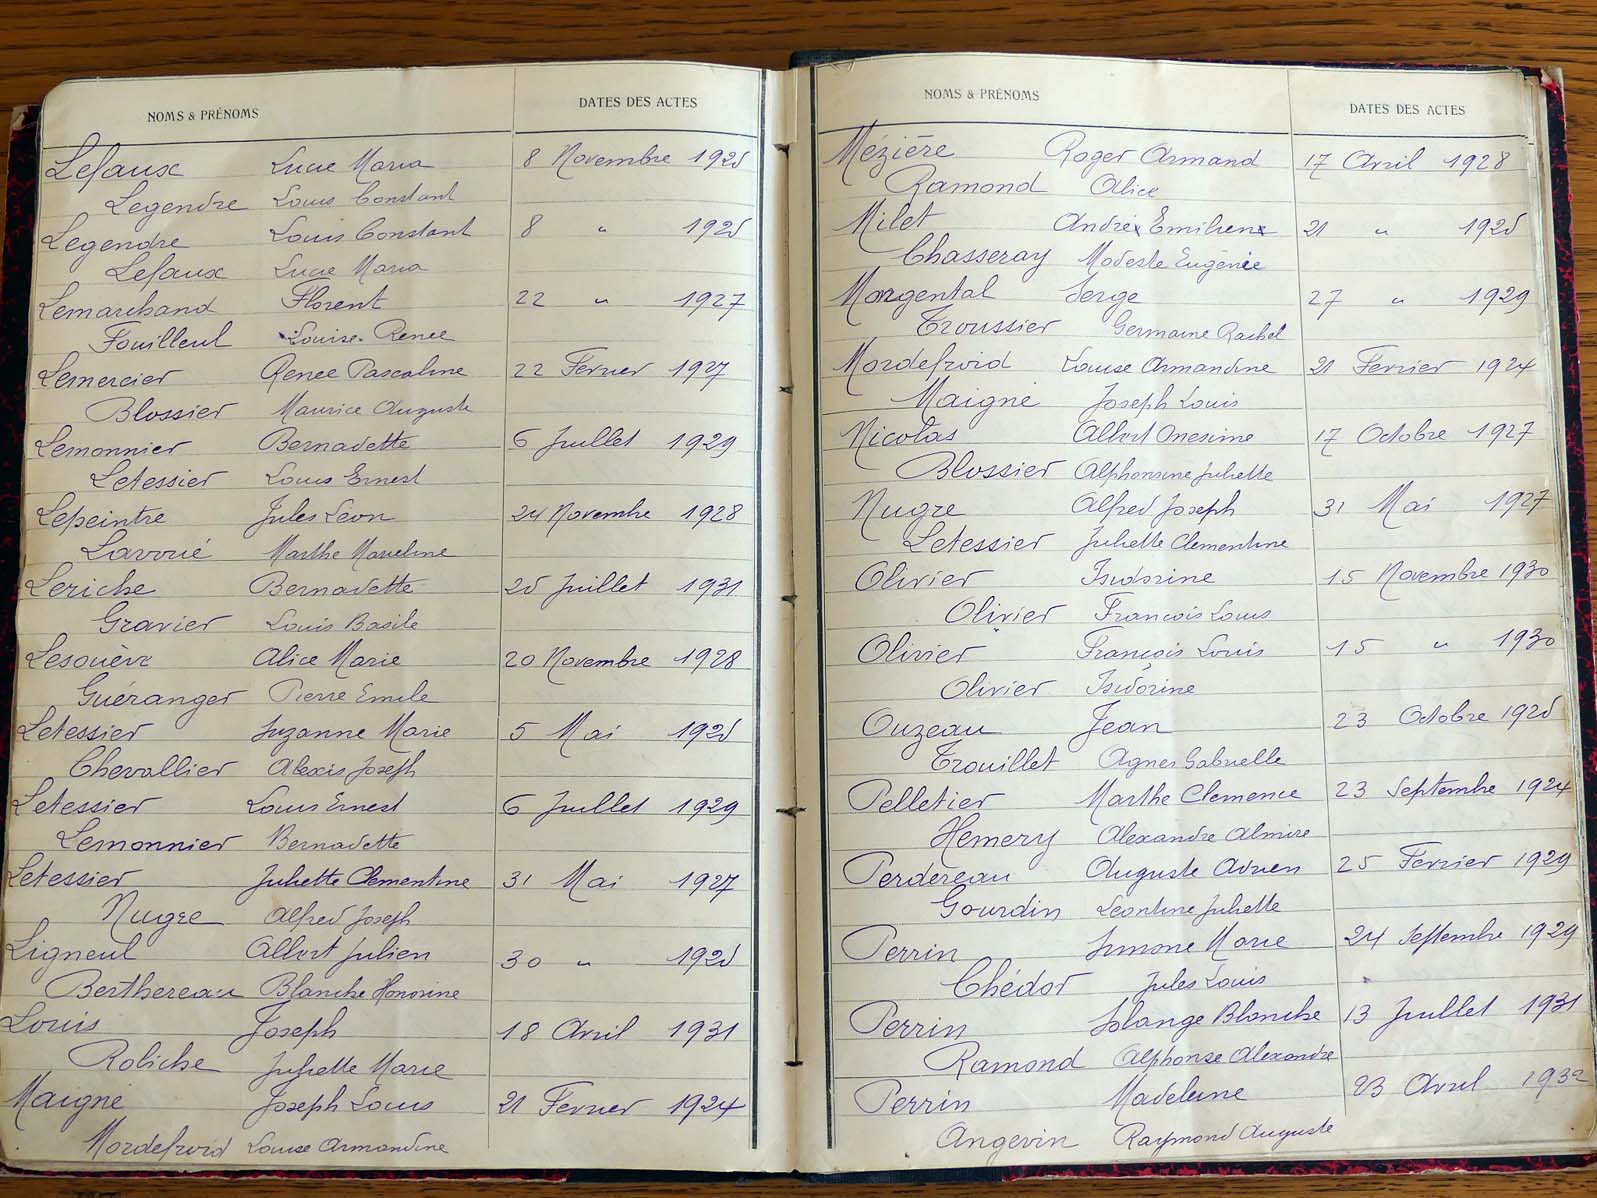 NOMS & PRÉNOMS DATES DES ACTES
Lefaux Lucie Maria 8 Novembre 1925
Legendre Louis Constant
Legendre Louis Constant 8 " 1925
Lefaux Lucie Maria
Lemarchand Florent 22 " 1927
Fouilleul Louise Renee
Lemercier Renee Pascaline 22 Fevrier 1927
Blossier Maurice Auguste
Lemonnier Bernadette 6 Juillet 1929
Letessier Louis Ernest
Lepeintre Jules Leon 24 Novembre 1928
Lavoué Marthe Marceline
Leriche Bernadette 25 Juillet 1931
Gravier Louis Basile
Lesouève Alice Marie 20 Novembre 1928
Guéranger Pierre Emile
Letessier Suzanne Marie 5 Mai 1925
Chevallier Alexis Joseph
Letessier Louis Ernest 6 Juillet 1929
Lemonnier Bernadette
Letessier Juliette Clementine 31 Mai 1927
Nugre Alfred Joseph
Ligneul Albert Julien 30 " 1925
Berthereau Blanche Honorine
Louis Joseph 18 Avril 1931
Robiche Juliette Marie
Maigne Joseph Louis 21 Fevrier 1924
Mordefroid Louise Armandine
NOMS & PRÉNOMS DATES DES ACTES
Mézière Roger Armand 17 Avril 1928
Ramond Alice
Milet André Emilien 21 " 1925
Chasseray Modeste Eugénie
Morgental Serge 27 " 1929
Troussier Germaine Rachel
Mordefroid Louise Armandine 21 Fevrier 1924
Maigne Joseph Louis
Nicolas Albert Onesime 17 Octobre 1927
Blossier Alphonsine Juliette
Nugre Alfred Joseph 31 Mai 1927
Letessier Juliette Clementine
Olivier Isidorine 15 Novembre 1930
Olivier François Louis
Olivier François Louis 15 " 1930
Olivier Isidorine
Ouzeau Jean 23 Octobre 1925
Trouillet Agnes Gabrielle
Pelletier Marthe Clemence 23 Septembre 1924
Hemery Alexandre Almire
Perdereau Auguste Adrien 25 Fevrier 1929
Gourdin Leontine Juliette
Perrin Simone Marie 24 Septembre 1929
Chédor Jules Louis
Perrin Solange Blanche 13 Juillet 1931
Ramond Alphonse Alexandre
Perrin Madeleine 23 Avril 1932
Angevin Raymond Auguste